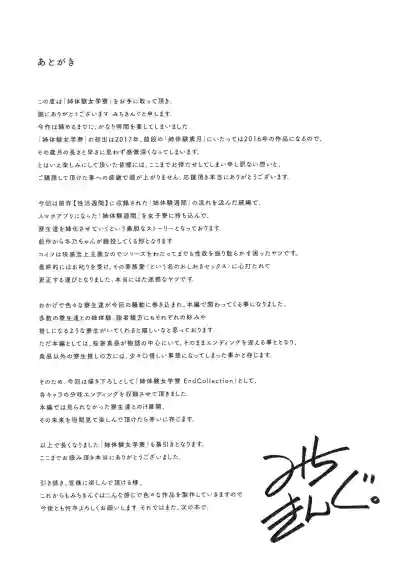 あとがき
この度は「姉体験女学寮」をお手に取って頂き、
誠にありがとうございます。みちきんぐと申します。
今作は纏めるまでに、かなり時間を要してしまいました。
「姉体験女学寮」の初出は2017年、前段の「姉体験歳月」にいたっては2016年の作品になるので、
その歳月の長さと早さに思わず感慨深くなってしまいます。
とはいえ楽しみにして頂いた皆様には、ここまでお待たせしてしまい申し訳ない想いと、
ご購読して頂けた事への感謝で頭が上がりません。応援頂き本当にありがとうございます。
今回は前作【性活週間】に収録された「姉体験週間」の流れを汲んだ続編で、
スマホアプリになった「姉体験週間」を女子寮に持ち込んで、
寮生達を姉化させていくという素敵なストーリーとなっております。
前作から
コイツは快感至上主義なのでシリーズをわたってまでも性欲を振り散らかす困ったヤツです。
最終的にはお叱りを受け、その家族愛(という名のおしおきセックス)に心打たれて
更正する運びとなりました。本当にはた迷惑なヤツです。
おかげで色々な寮生達が今回の騒動に巻き込まれ、本編で関わってくる事になりました。
多数の寮生達との姉体験、読者様方にもそれぞれの好みや
推しになるような寮生がいてくれると嬉しいなと思っております。
ただ本編としては、桜寮真昼が物語の中心にいて、そのままエンディングを迎える事となり、
真昼以外の寮生推しの方には、少々口惜しい事態になってしまった事かと存じます。
そのため、今回は描き下ろしとして「姉体験女学寮 EndCollection」として、
各キャラの分岐エンディングを収録させて頂きました。
本編では見られなかった寮生達とのif展開、
その未来を垣間見て楽しんで頂けたら幸いに存じます。
以上で長くなりました「姉体験女学寮」も幕引きとなります。
ここまでお読み頂き本当にありがとうございました。
引き続き、皆様に楽しんで頂ける様、
これからもみちきんぐはこんな感じで色々な作品を製作していきますので
今後とも何卒よろしくお願いします。それではまた、次の本で。
みち
きんぐ。